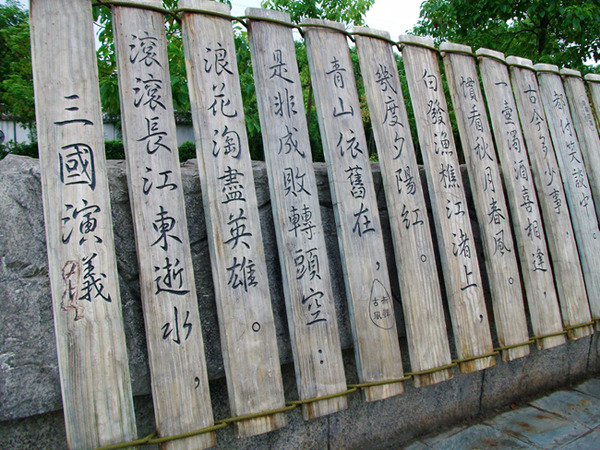 三國演義
滾滾長江東逝水，
浪花淘盡英雄。
是非成敗轉頭空：
青山依舊在，
幾度夕陽紅。
白發漁樵江渚上，
慣看秋月春風。
一壺濁酒喜相逢，
古今多少事，
都付笑談中。